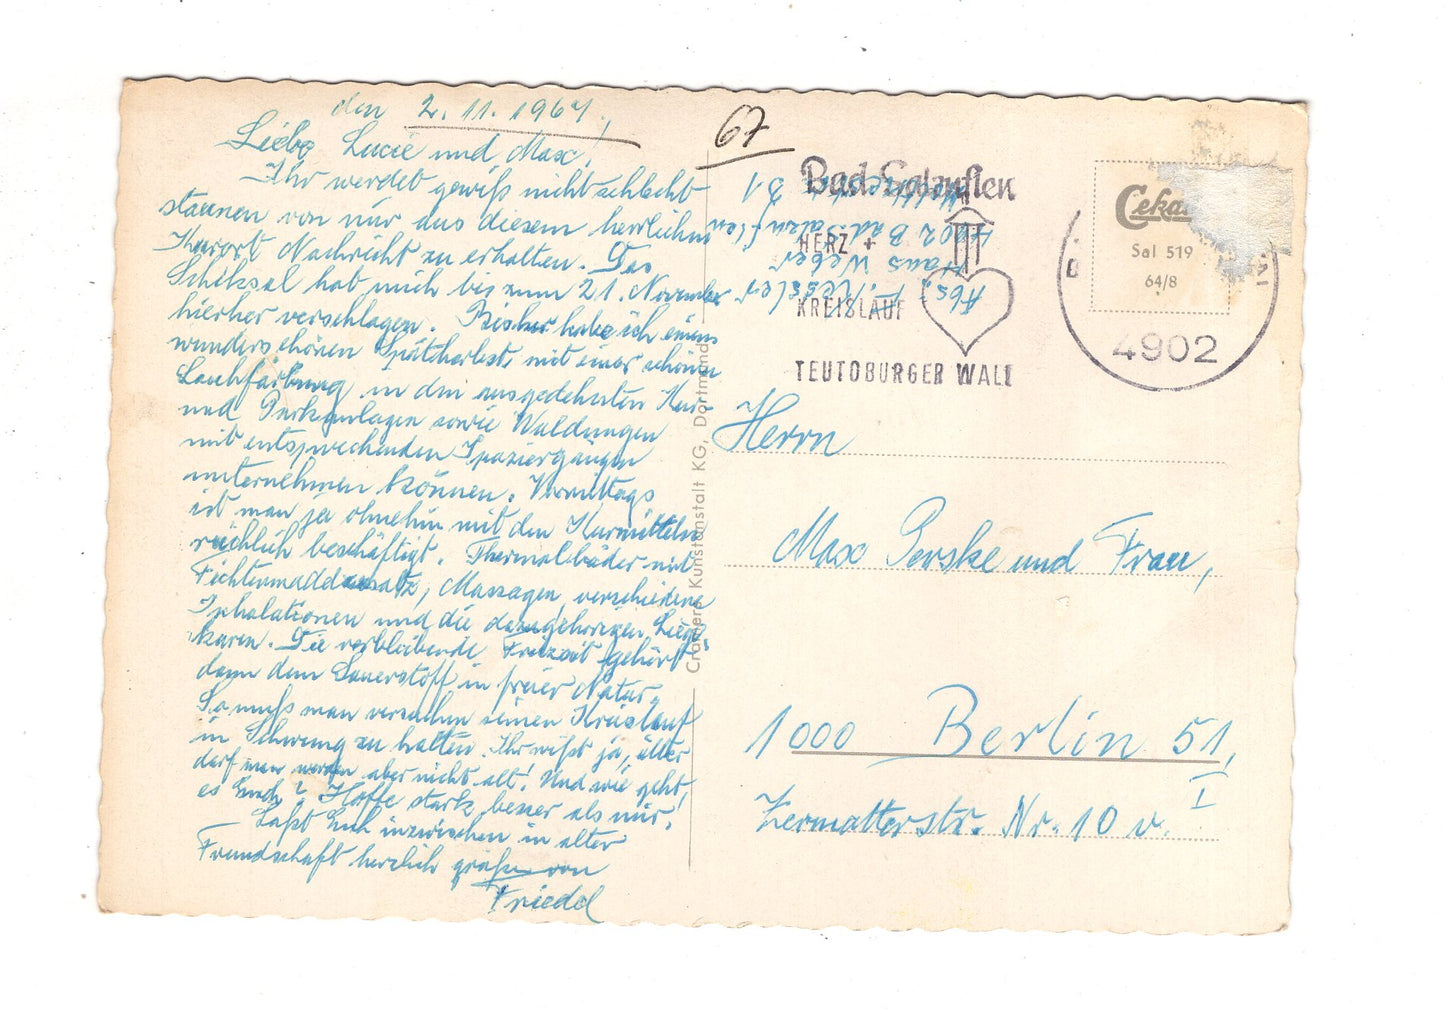 den 2.11.1967,
Liebe Lucie und Max!
Ihr werdet gewiß nicht schlecht
staunen von mir aus diesem herrlichen
Kurort Nachricht zu erhalten. Das
Schiksal hat mich bis zum 21. November
hierher verschlagen. Bisher habe ich einen
wunderschönen Spätherbst mit einer schönen
Laubfärbung in den ausgedehnten Kur-
und Parkanlagen sowie Waldungen
mit entsprechenden Spaziergängen
unternehmen können. Vormittags
ist man ja ohnehin mit den Kurmitteln
reichlich beschäftigt. Thermalbäder mit
Fichtennadelzusatz, Massagen, verschiedene
Inhalationen und die dazugehörigen Liege-
kuren. Die verbleibende Freizeit gehört
dann dem Sauerstoff in freier Natur.
So muß man versuchen seinen Kreislauf
in Schwung zu halten. Ihr wißt ja, älter
darf man werden aber nicht alt! Und wie geht
es Euch? Hoffe stark, besser als mir.
Laßt Euch inzwischen in alter
Freundschaft herzlich grüßen von
Friedel
67
Cramers Kunstanstalt KG, Dortmund
Abs.: F. Kessler
Haus Weber
4902 Bad Salzuflen
31
Bad Salzuflen
HERZ +
KREISLAUF
TEUTOBURGER WALD
4902
Ceka
Sal 519
64/8
Herrn
Max Perske und Frau,
1000 Berlin 51,
Zermatterstr. Nr. 10 v. I